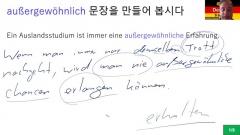 außergewöhnlich 문장을 만들어 봅시다
Ein Auslandsstudium ist immer eine außergewöhnliche Erfahrung.
Wenn man immer nur denselben Trott
nachgeht, wird man nie außergewöhnliche
Chancen erlangen können.
erhalten